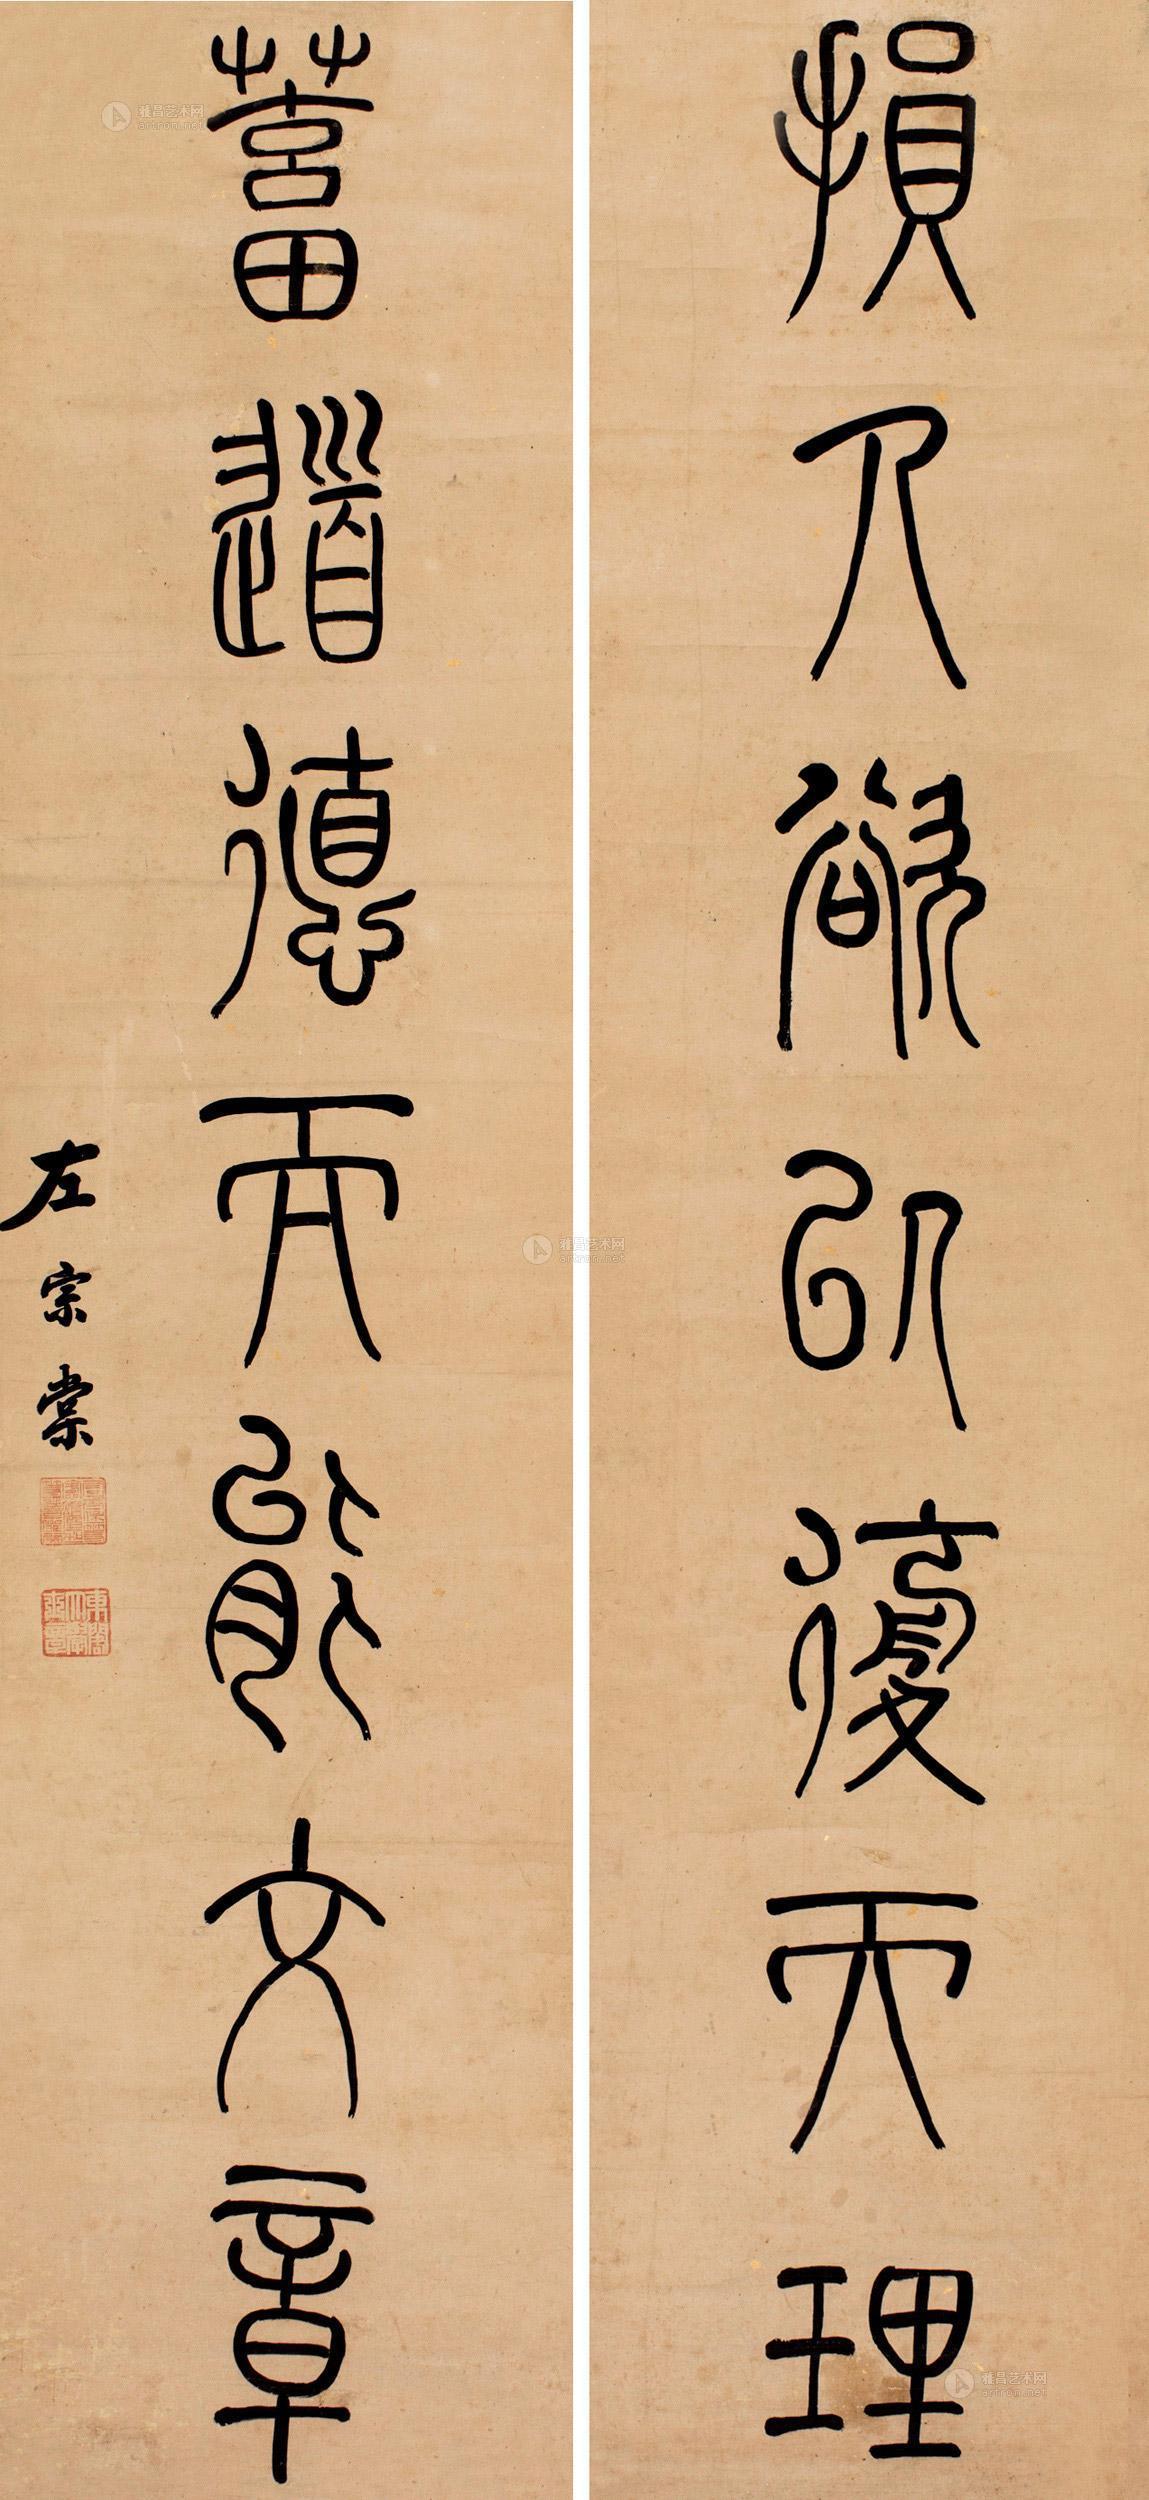 損人欲以復天理
蓄道德而能文章
左宗棠
東閣大學士章
雅昌艺术网
artron.net
雅昌艺术网
artron.net
雅昌艺术网
artron.net